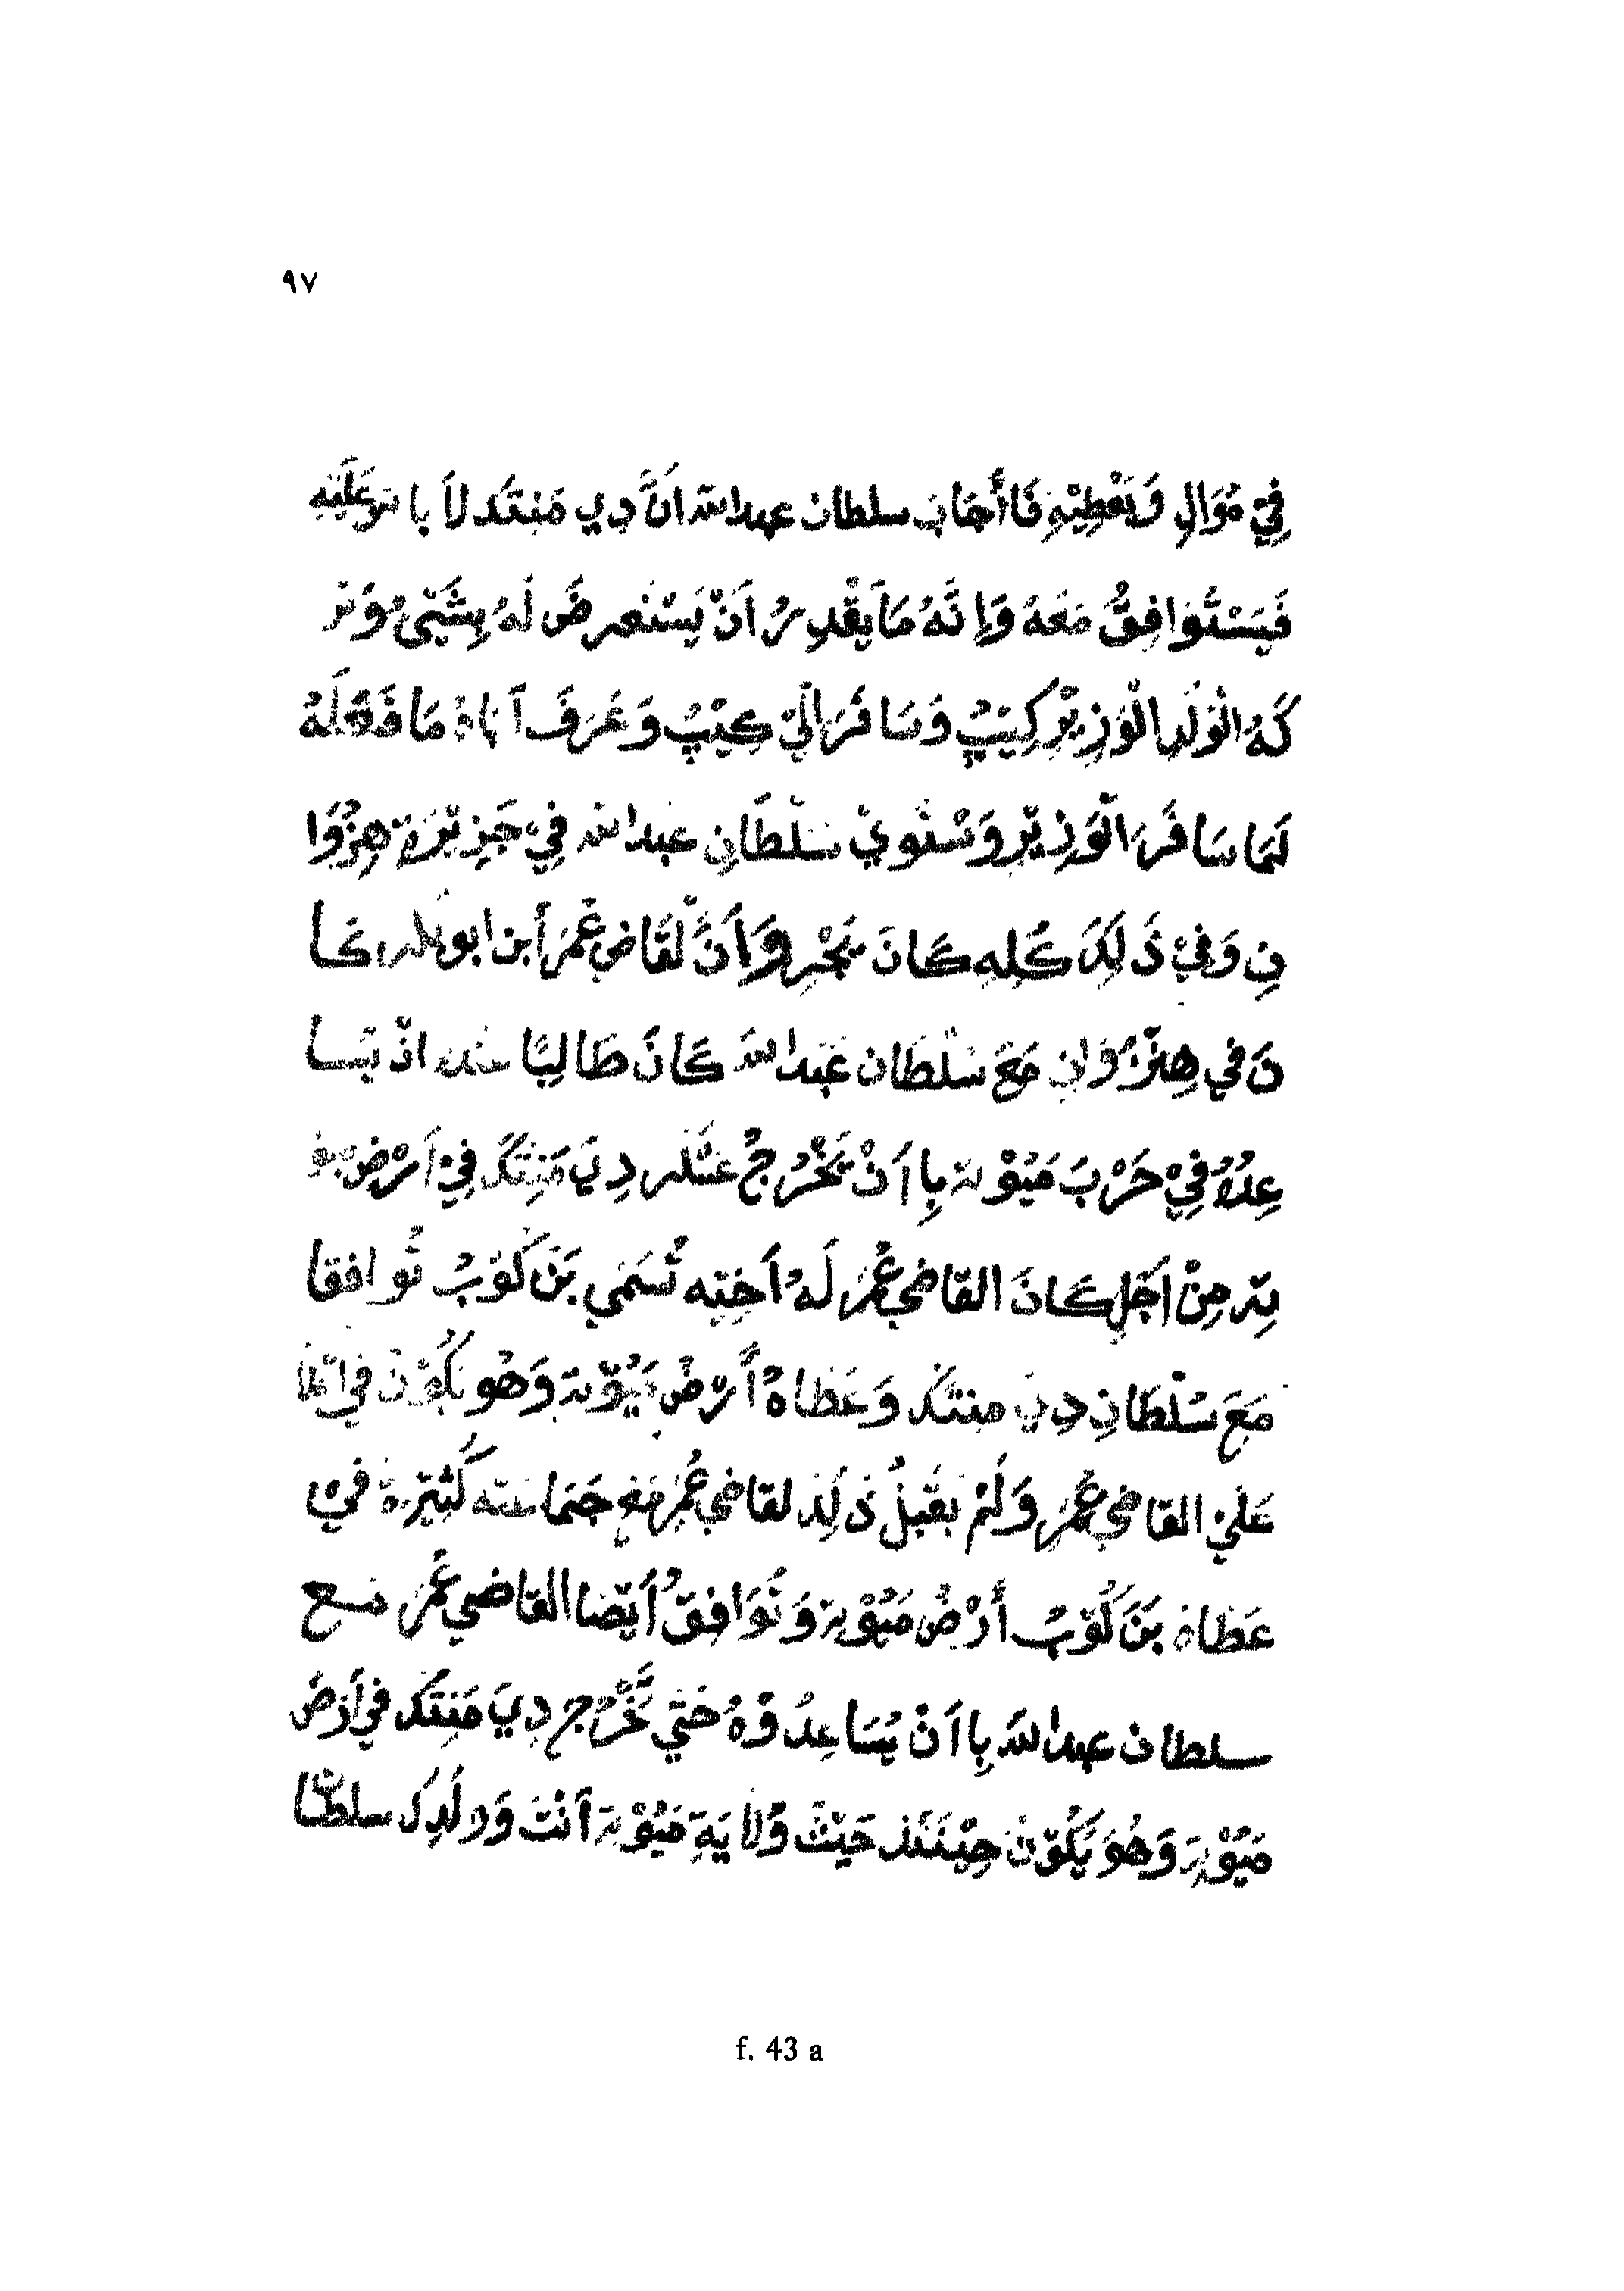 ٩٧
فِيْ مُوَالِ وَيَعْطِيْهِ فَاأَجَابَ سلطان عبدالله انَّ دِي مَنِتَكَ لاَ با عَلَيْهِ
فَيَسْتَّوَافِقُ مَعَهُ وَاِنَّهُ مَا يَقْدِرُ اَنْ يَسْتَعرِضَ لَهُ بِشَيْئ وَ
لَهُ الْوَلَدِ الْوَزِيْرِ كِيَبُ وَسَافَرَ اِلَيْ كِيْبُ وَعَرَفَ اَبَاهُ مَا فَعَلَهُ
لَمَا سَافَرَ الْوَزِيْرِ وَسْتَوِيْ سَلْطَانِ عبدالله فِيْ جَزِيْرَة هِزُوَا
نِ وَفِيْ ذَلِكَ كُلِهِ كَانَ يَجْرِ وَاَنَّ لْقَاضِي عُمَرَ اَبن ابو كا
نَ في هِنْزُوَانِ مَعَ سَلْطَان عَبْدالله كَانَ طَالِبًا اذْ يسا
عِدُهُ فِيْ حَرْبَ مَيُوْتَة بِااَنْ يَخْرُجُ عَسْكَر دِيَ مَنِتَكَ فِيْ اَرْضْ مو
تِة مِنْ اَجَلِ كَانَ القاضي عُمَرُ لَهُ اَخِتِه تُسَمَي بَنَ كُوْبُ تُوافقا
مَعَ سُلْطَانِ دِيَ مِنتَكَ وَعَطَاهُ اَرْضُ مَيُوْتَة وَهُو يَكُوْنُ في
عَلَيْ القاضي عُمَرُ وَلَمْ يَقْبَلُ ذَلِكَ لقاضي عُمَرُ مَعِ جَمَاعته كَثِيْرَة فيْ
عَطَاهُ بَنَ كُوْبُ أَرْضُ مَيُوْتِة وَتُوَافِقُ اَيْضا القاضي عُمَرُ مع
سلطان عبدالله بِااَنْ يُسَاعِدُوْهُ حَتَيْ يَّخْرُج دِيَ مَنِتَكَ فِي اَرْضُ
مَيُوْتِة وَهُوَ يَكُوْنُ حِيْنَئَذ حَيْثُ وَلاَيَةِ مَيُوْتِة اَنْتَ وَولَدِكَ سلطانا
f. 43 a